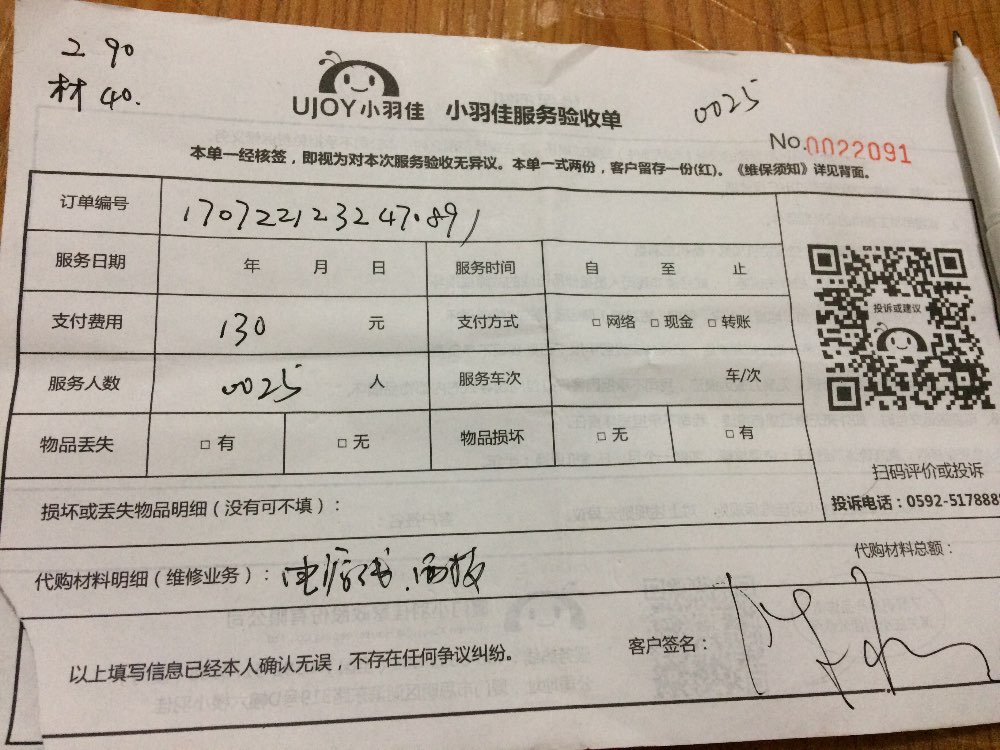 2 90
材 40.
UJOY小羽佳 小羽佳服务验收单
0025
No.0022091
本单一经核签，即视为对本次服务验收无异议。本单一式两份，客户留存一份(红)。《维保须知》详见背面。
订单编号 1707221232470891
服务日期 年 月 日 服务时间 自 至 止
支付费用 130 元 支付方式 □ 网络 □ 现金 □ 转账
服务人数 0025 人 服务车次 车/次
物品丢失 □ 有 □ 无 物品损坏 □ 无 □ 有
投诉或建议
扫码评价或投诉
投诉电话：0592-517888
损坏或丢失物品明细（没有可不填）：
代购材料总额：
代购材料明细（维修业务）： 面板
客户签名：
以上填写信息已经本人确认无误，不存在任何争议纠纷。